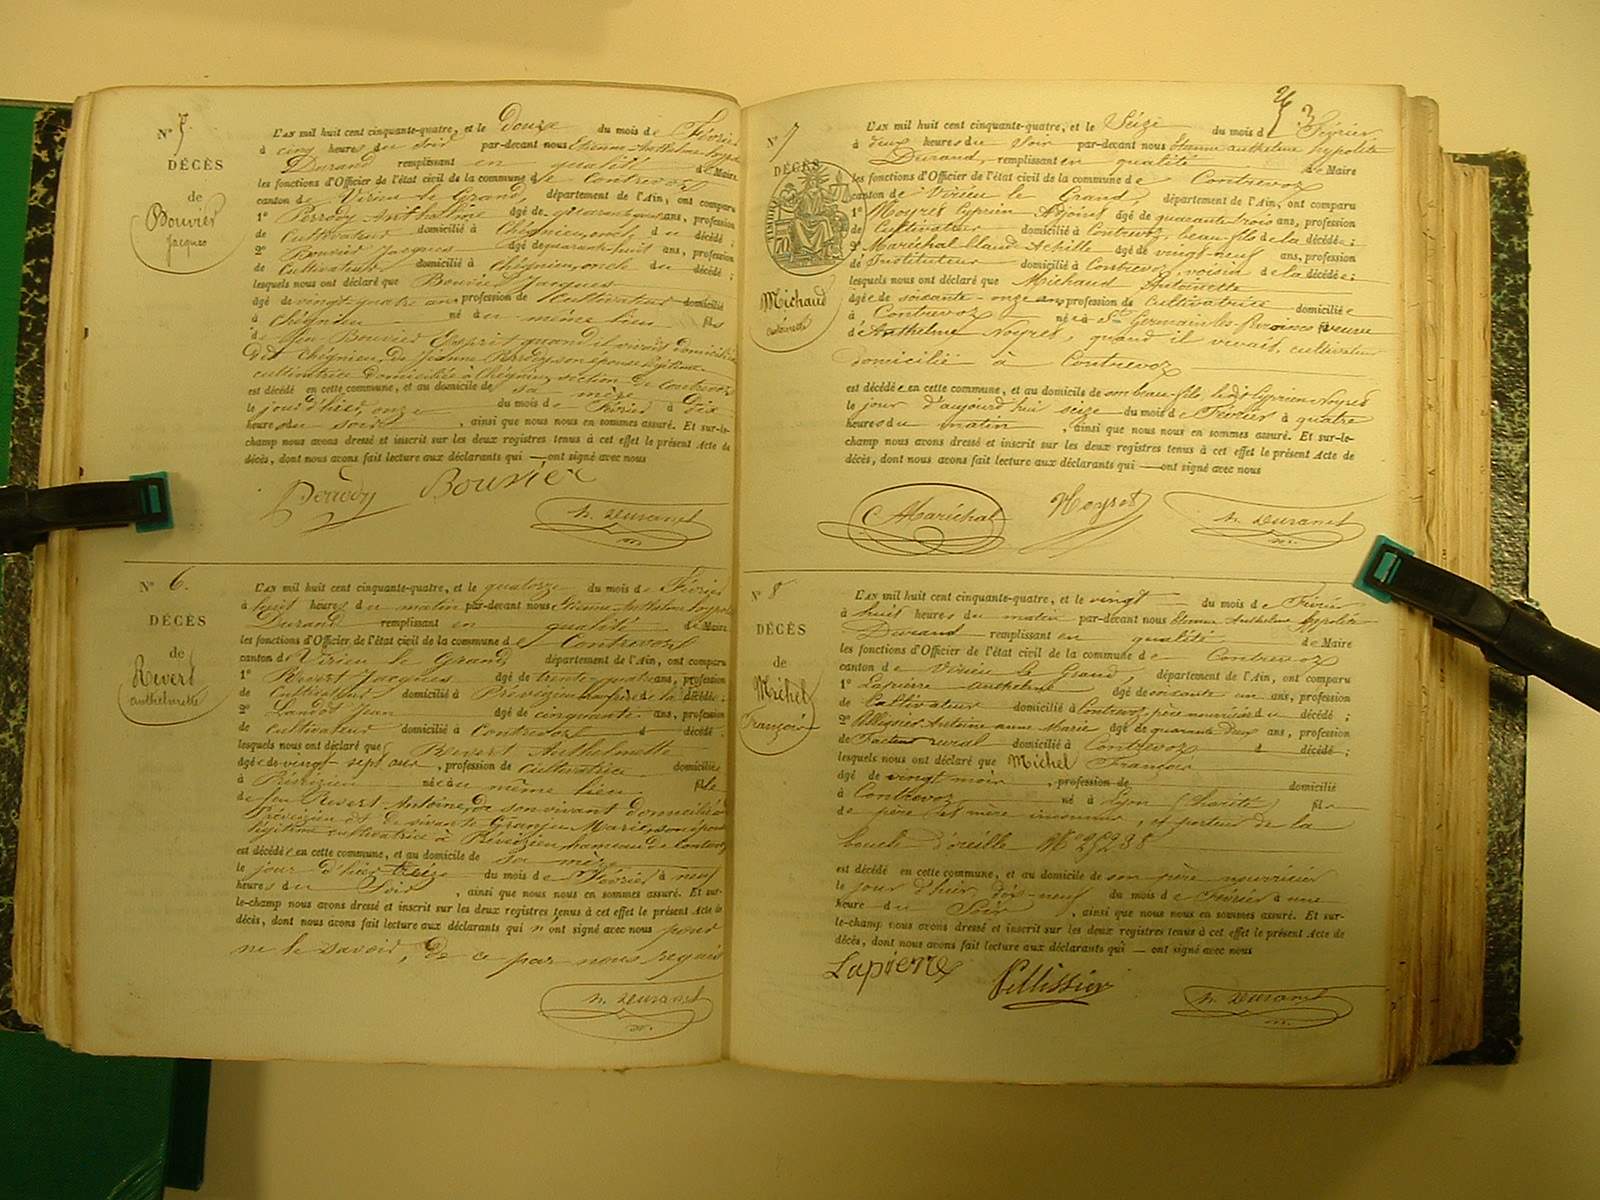 N° 5.
DÉCÈS
de
Bouvier
Jacques
L'AN mil huit cent cinquante-quatre, et le Douze du mois de Févrie
à cinq heures du soir par-devant nous Etienne Anthelme hypolit
Durand remplissant en qualité de Maire
les fonctions d'Officier de l'état civil de la commune de Contrevoz
canton de Virieu le Grand, département de l'Ain, ont comparu
1° Perrody Anthelme âgé de ans, profession
de Cultivateur domicilié à Cheignieu, oncle du décédé ;
2° Bouvier Jacques âgé de quarante-huit ans, profession
de Cultivateur domicilié à Cheignieu, oncle du décédé ;
lesquels nous ont déclaré que Bouvier Jacques
âgé de vingt quatre ans profession de Cultivateur domicilié
à Cheignieu né à u même lieu fils
de feu Bouvier Esprit quand il vivait domicilié
dit Cheignieu, de Jeanne son épouse légitime
cultivatrice domiciliée à Cheignieu, section de Contrevoz
est décédé en cette commune, et au domicile de sa mère
le jour d'hier, onze du mois de Février à Dix
heures du soir , ainsi que nous nous en sommes assuré. Et sur-le-
champ nous avons dressé et inscrit sur les deux registres tenus à cet effet le présent Acte de
décès, dont nous avons fait lecture aux déclarants qui — ont signé avec nous
Perrody Bouvier
h. Durand
N° 6.
DÉCÈS
de
Revert
anthelmette
L'AN mil huit cent cinquante-quatre, et le quatorze du mois de Févrie
à huit heures du matin par-devant nous Etienne Anthelme hypoli
Durand remplissant en qualité de Maire
les fonctions d'Officier de l'état civil de la commune de Contrevoz
canton de Virieu le Grand département de l'Ain, ont comparu
1° Revert Jacques âgé de trente quatre ans, profession
de Cultivateur domicilié à frère de la décédée ;
2° Landot Jean âgé de cinquante ans, profession
de Cultivateur domicilié à Contrevoz d décédé ;
lesquels nous ont déclaré que Revert Anthelmette
âgée de vingt-sept ans , profession de cultivatrice domiciliée
à née à u même lieu fille
de feu Revert Antoine, de son vivant domicilié à
et de vivante Marie, son épouse
légitime cultivatrice à hameau de Contrevoz
est décédée en cette commune, et au domicile de sa mère
le jour d'hier treize du mois de Février à neuf
heures du Soir , ainsi que nous nous en sommes assuré. Et sur-
le-champ nous avons dressé et inscrit sur les deux registres tenus à cet effet le présent Acte de
décès, dont nous avons fait lecture aux déclarants qui n'ont signé avec nous pour
ne le savoir, de ce par nous requis
h. Durand
3
N° 7
DÉCÈS
Michaud
antoinette
L'AN mil huit cent cinquante-quatre, et le Seize du mois de Février
à deux heures du soir par-devant nous Etienne anthelme hypolite
Durand, remplissant en qualité de Maire
les fonctions d'Officier de l'état civil de la commune de Contrevoz
canton de Virieu le Grand, département de l'Ain, ont comparu
1° Noyret Cyprien Adjoint âgé de quarante trois ans, profession
de Cultivateur domicilié à Contrevoz, beau-fils de la décédée ;
2° Maréchal Claude Achille âgé de vingt-neuf ans, profession
d'Instituteur domicilié à Contrevoz, voisin de la décédée ;
lesquels nous ont déclaré que Michaud Antoinette
âgée de soixante-onze ans profession de Cultivatrice domiciliée
à Contrevoz née à St Germain les Paroisses veuve
d'Anthelme Noyret, quand il vivait, cultivateur
domicilié à Contrevoz
est décédée en cette commune, et au domicile de son beau-fils, ledit Cyprien Noyret
le jour d'aujourd'hui seize du mois de Février à quatre
heures du matin , ainsi que nous nous en sommes assuré. Et sur-le-
champ nous avons dressé et inscrit sur les deux registres tenus à cet effet le présent Acte de
décès, dont nous avons fait lecture aux déclarants qui — ont signé avec nous
Maréchal Noyret h. Durand
N° 8
DÉCÈS
de
Michel
François
L'AN mil huit cent cinquante-quatre, et le vingt du mois de Février
à huit heures du matin par-devant nous Etienne Anthelme hypolite
Durand remplissant en qualité de Maire
les fonctions d'Officier de l'état civil de la commune de Contrevoz
canton de Virieu le Grand, département de l'Ain, ont comparu
1° Lapierre anthelme âgé de soixante un ans, profession
de Cultivateur domicilié à Contrevoz, père nourricier du décédé ;
2° Pellissier Antoine anne Marie âgé de quarante deux ans, profession
de Facteur rural domicilié à Contrevoz d décédé ;
lesquels nous ont déclaré que Michel François
âgé de vingt mois , profession de domicilié
à Contrevoz né à Lyon (Charité) fils
de père et mère inconnus, et porteur de la
boucle d'oreille N° 25238
est décédé en cette commune, et au domicile de son père nourricier
le jour d'hier dix-neuf du mois de Février à une
heure du Soir , ainsi que nous nous en sommes assuré. Et sur-
le-champ nous avons dressé et inscrit sur les deux registres tenus à cet effet le présent Acte de
décès, dont nous avons fait lecture aux déclarants qui — ont signé avec nous
Lapierre Pellissier
h. Durand